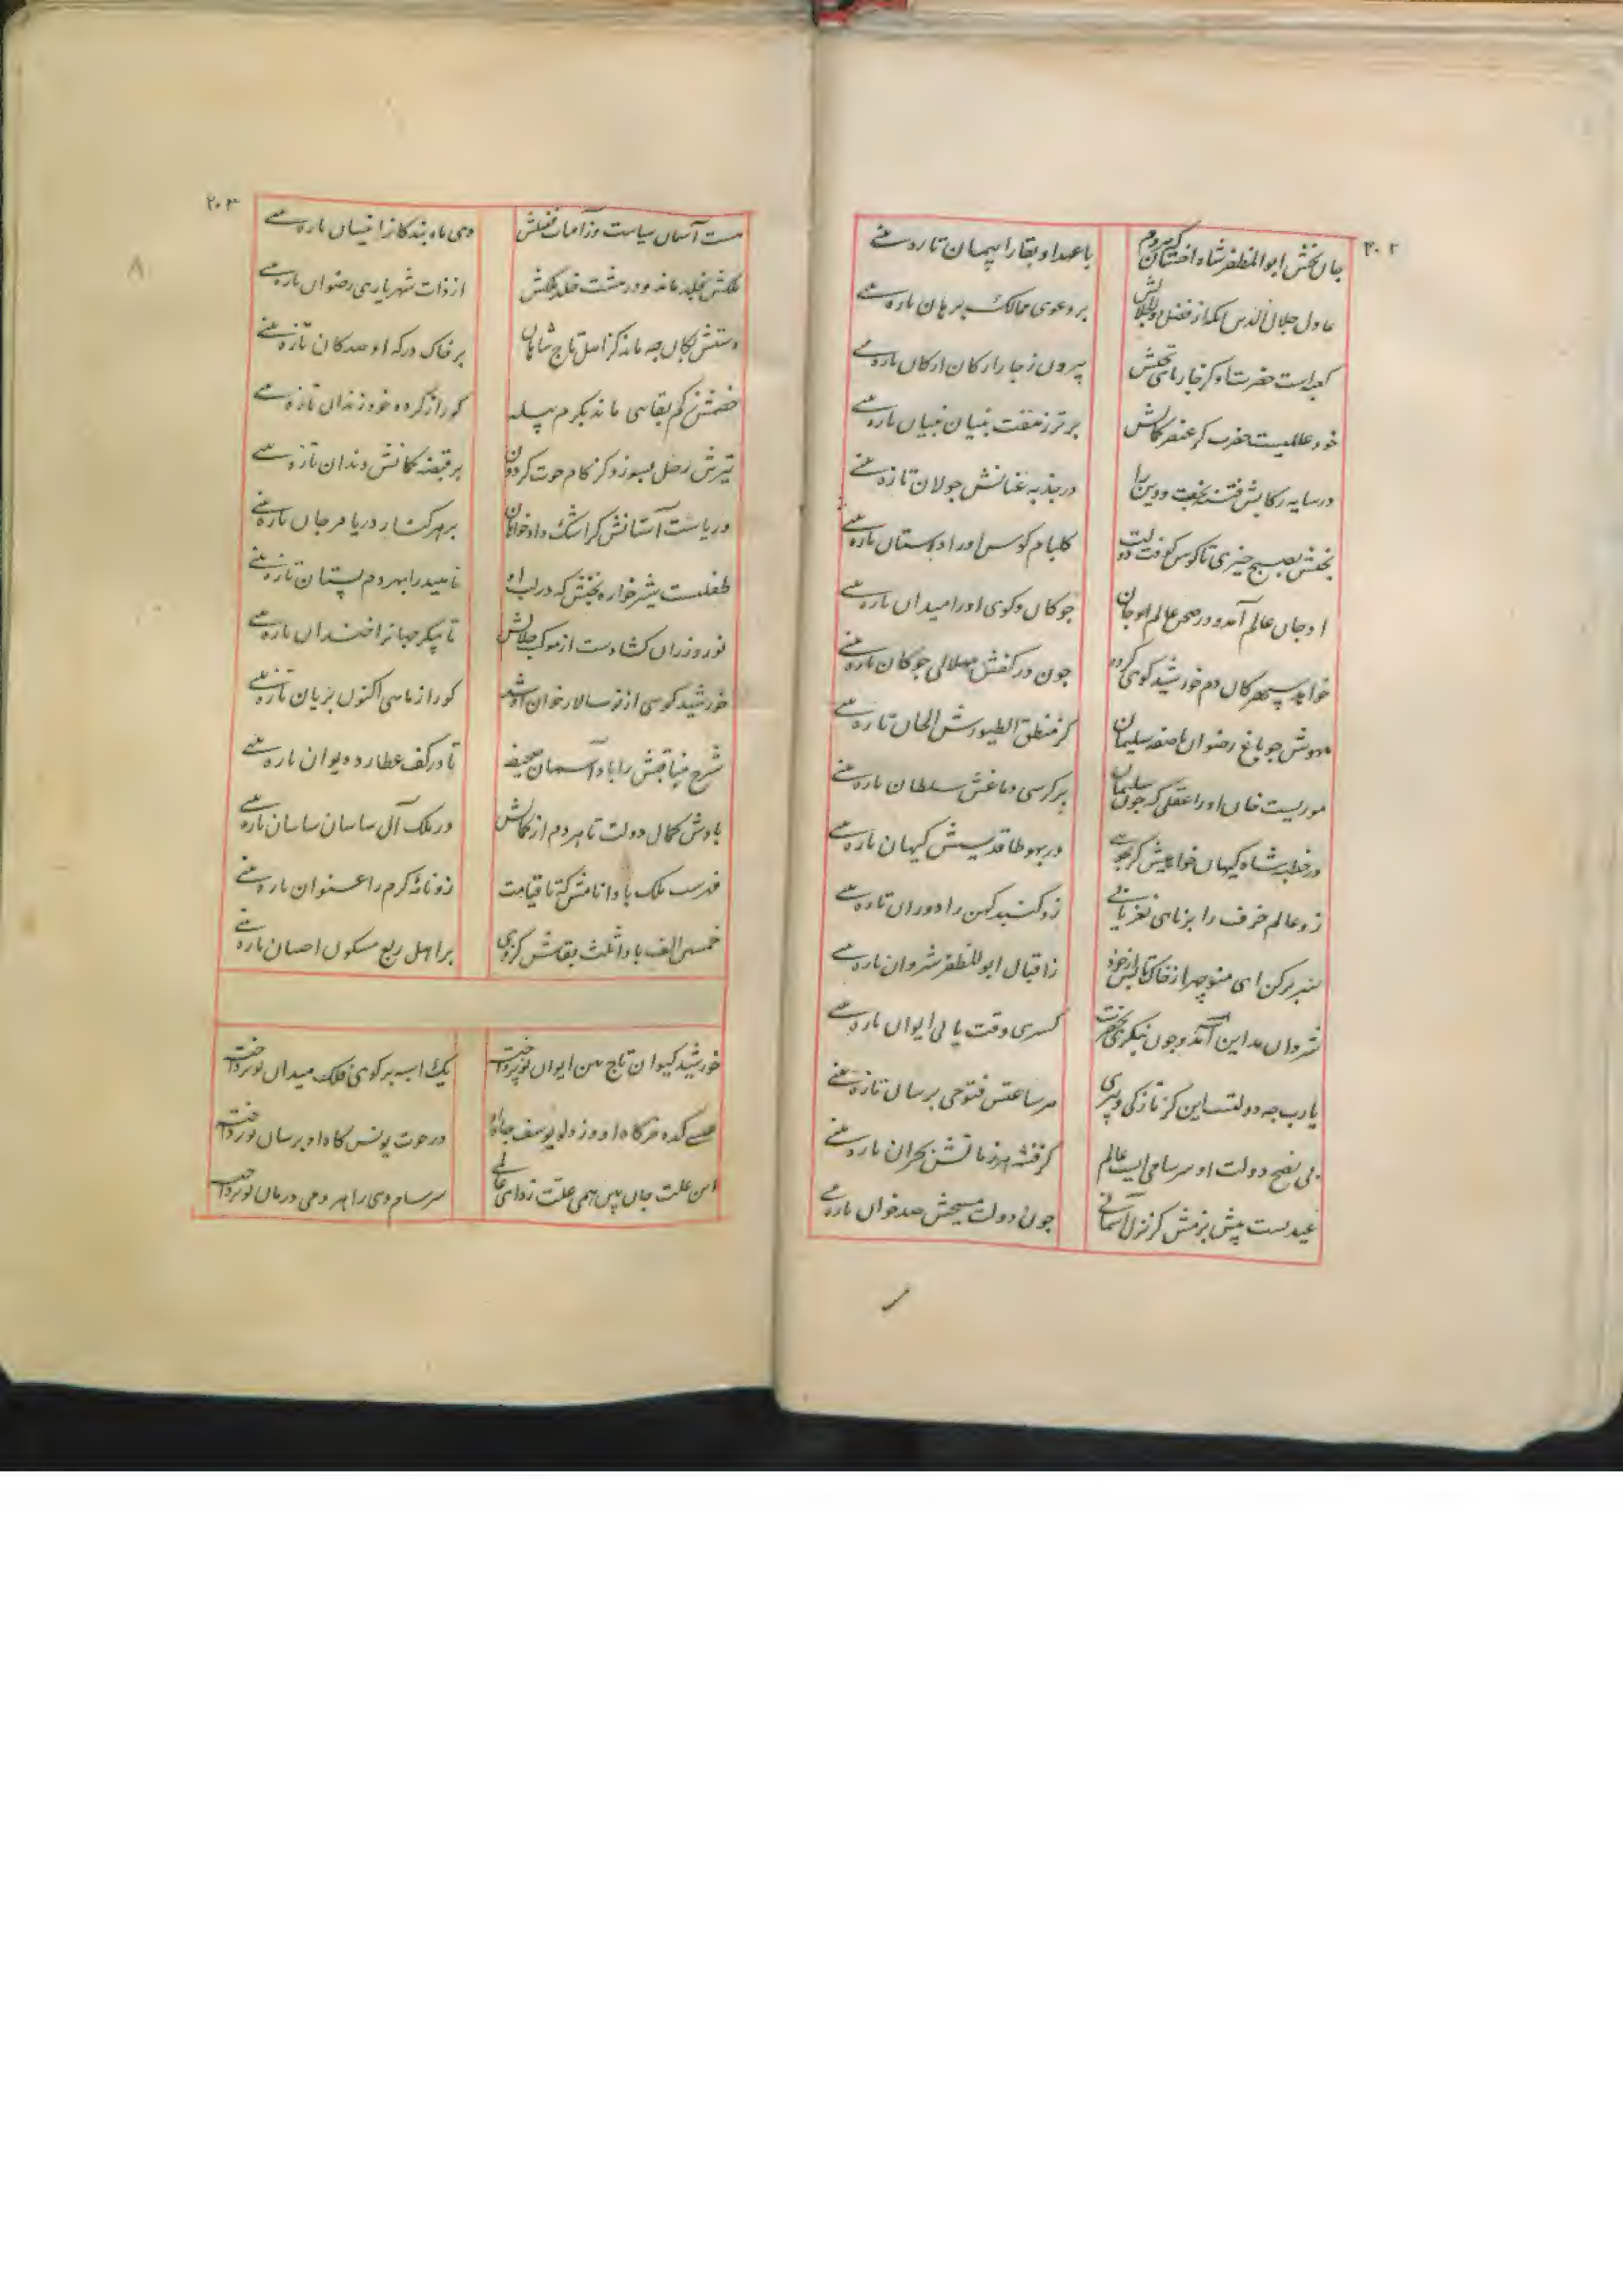 ۲۰۲
جان بخش ابوالمظفر شاه اخستان که هردم با عهد او بقا را پیمان تازه بینی
عادل جلال الدین آنکه از فضل بر دعوی ممالک برهان تازه بینی
کعبه است حضرت او کز چار پای تختش بیرون ز چار ارکان ارکان تازه بینی
خود عالمیست حضرت کز عنصر کمالش برتر ز هفت بنیان بنیان تازه بینی
در سایه رکابش فتنه بخفت و دین را در جذبه عنانش جولان تازه بینی
بختش بصبح خیزی تا کوفت کوس دولت گلبام کوس او را دستان تازه بینی
او جان عالم آمد و در صحن عالم او جان چوکان و کوی او را میدان تازه بینی
خواهد سپهر کان دم خورشید کوی گردد چون در کفش هلالی چوکان تازه بینی
مهوش چو باغ رضوان با صفه سلیمان کز منطق الطیورش الحان تازه بینی
موریست خان او را عقلی که چون سلیمان بر کرسی دماغش سلطان تازه بینی
در خطبه شاه کیهان خوانیش کیهان تازه بینی
زو عالم خرف را برنای نغز یابی زو گنبد کهن را دوران تازه بینی
سر بر کن ای منوچهر از خاک ز اقبال ابوالمظفر شروان تازه بینی
شروان مداین آمد و چون بنگری کسری وقت یابی ایوان تازه بینی
یا رب چه دولتست این کز تازکی هر ساعتش فتوحی برسان تازه بینی
بی نضج دولت او سرسامی است عالم گرفته هر زمانش بحران تازه بینی
عیدست پیش بزمش کز نزل آسمانی چون دولت مسیحش صد خوان تازه بینی
۲۰۳
هست آسمان سیاست وز آفتاب فضلش دی ماه بندکان را نیسان تازه بینی
ملکش بخلد ماند و در هشت خلد ملکش از ذات شهریاری رضوان تازه بینی
دستش بکان چه ماند کز لعل تاج شاهان بر خاک درکه او صد کان تازه بینی
خصمش ز کم بقایی ماند بکرم پیله کو را ز کرده خود زندان تازه بینی
تیرش زحل بسوزد کز کام حوت گردون بر قبضه کمانش دندان تازه بینی
دریاست آستانش کز اشک دادخواهان بر هر کنار دریا مرجان تازه بینی
طفلیست شیرخواره بختش که در لب او ناهید را بهر دم پستان تازه بینی
نوروز ران کشادست از موکب جلالش تا پیکر جهان را خندان تازه بینی
خورشید کوسی از نو سالار خوان او شد کو را ز ماهی اکنون بریان تازه بینی
شرح مناقبش را بادا آسمان صحیفه تا در کف عطارد دیوان تازه بینی
بادش کمال دولت تا هر دم از کمالش در ملک آل ساسان ساسان تازه بینی
فهرست ملک بادا نامش که تا قیامت زو نامه کرم را عنوان تازه بینی
خمسین الف بادا ثلث بقاش کز وی بر اهل ربع مسکون احسان تازه بینی
خورشید کیوان تاج بین ایوان نو پرداخته یک اسبه بر کوی فلک میدان نو پرداخته
عیسی کده خرگاه او وز دلو یوسف جاه او در حوت یونس گاه او برسان نو پرداخته
این علت جان بین همی علت زدای عالمی سرسام دی را هر دمی درمان نو پرداخته